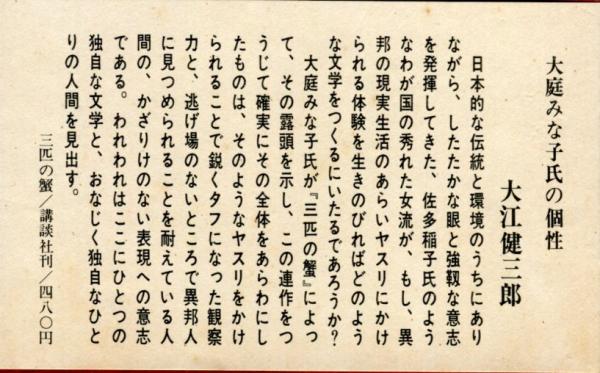 大庭みな子氏の個性
大江健三郎
日本的な伝統と環境のうちにあり
ながら、したたかな眼と強靱な意志
を発揮してきた、佐多稲子氏のよう
なわが国の秀れた女流が、もし、異
邦の現実生活のあらいヤスリにかけ
られる体験を生きのびればどのよう
な文学をつくるにいたるであろうか?
大庭みな子氏が『三匹の蟹』によっ
て、その露頭を示し、この連作をつ
うじて確実にその全体をあらわにし
たものは、そのようなヤスリをかけ
られることで鋭くタフになった観察
力と、逃げ場のないところで異邦人
に見つめられることを耐えている人
間の、かざりけのない表現への意志
である。われわれはここにひとつの
独自な文学と、おなじく独自なひと
りの人間を見出す。
三匹の蟹/講談社刊/四八〇円